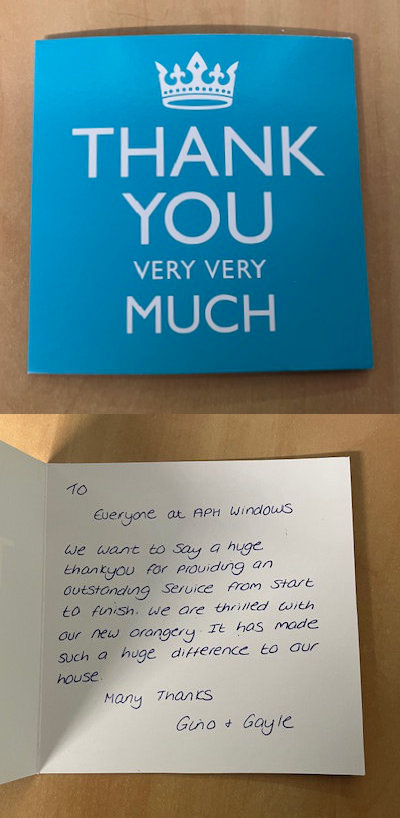 THANK
YOU
VERY VERY
MUCH
TO
Everyone at APH Windows
We want to say a huge
thankyou for providing an
outstanding service from start
to finish. We are thrilled with
our new orangery. It has made
such a huge difference to our
house.
Many Thanks
Gino + Gayle